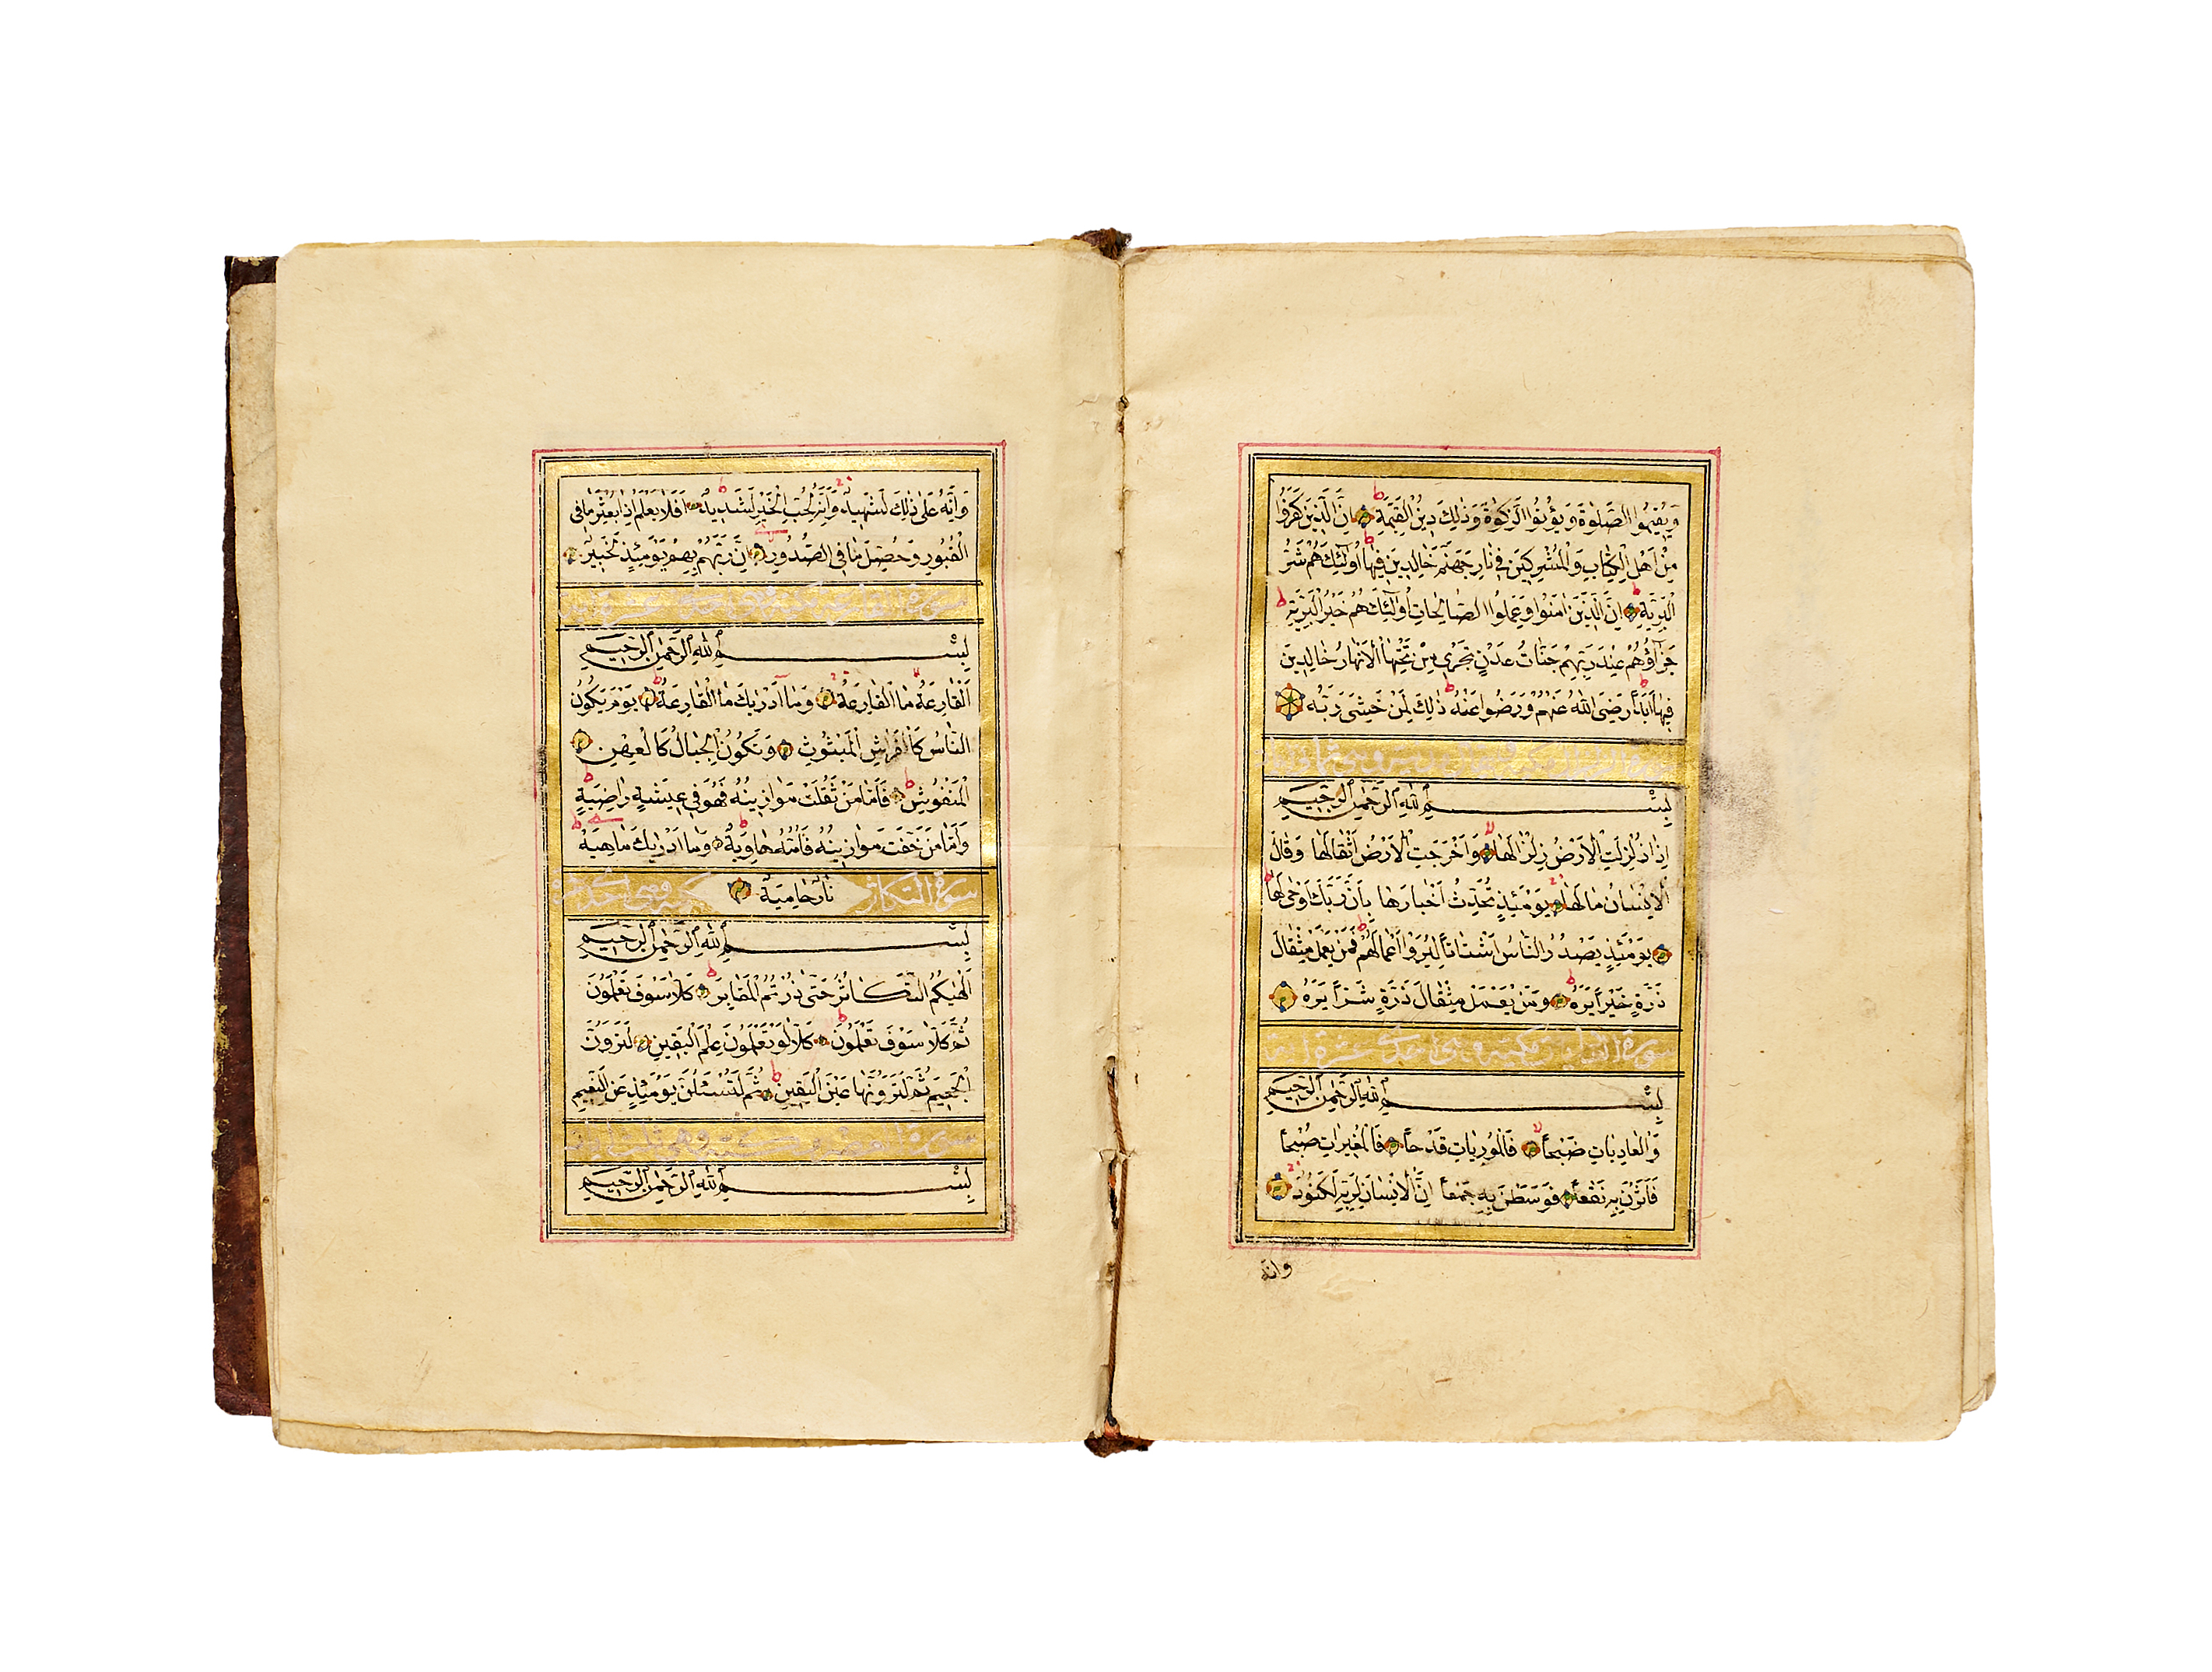 وَيُقِيمُوا الصَّلٰوةَ وَيُؤْتُوا الزَّكٰوةَ وَذٰلِكَ دِينُ الْقَيِّمَةِ اِنَّ الَّذِينَ كَفَرُوا
مِنْ اَهْلِ الْكِتَابِ وَالْمُشْرِكِينَ فِي نَارِ جَهَنَّمَ خَالِدِينَ فِيهَا اُولٰئِكَ هُمْ شَرُّ
الْبَرِيَّةِ اِنَّ الَّذِينَ اٰمَنُوا وَعَمِلُوا الصَّالِحَاتِ اُولٰئِكَ هُمْ خَيْرُ الْبَرِيَّةِ
جَزَاؤُهُمْ عِنْدَ رَبِّهِمْ جَنَّاتُ عَدْنٍ تَجْرِي مِنْ تَحْتِهَا الْاَنْهَارُ خَالِدِينَ
فِيهَا اَبَدًا رَضِيَ اللّٰهُ عَنْهُمْ وَرَضُوا عَنْهُ ذٰلِكَ لِمَنْ خَشِيَ رَبَّهُ
بِسْمِ اللّٰهِ الرَّحْمٰنِ الرَّحِيمِ
اِذَا زُلْزِلَتِ الْاَرْضُ زِلْزَالَهَا وَاَخْرَجَتِ الْاَرْضُ اَثْقَالَهَا وَقَالَ
الْاِنْسَانُ مَا لَهَا يَوْمَئِذٍ تُحَدِّثُ اَخْبَارَهَا بِاَنَّ رَبَّكَ اَوْحٰى لَهَا
يَوْمَئِذٍ يَصْدُرُ النَّاسُ اَشْتَاتًا لِيُرَوْا اَعْمَالَهُمْ فَمَنْ يَعْمَلْ مِثْقَالَ
ذَرَّةٍ خَيْرًا يَرَهُ وَمَنْ يَعْمَلْ مِثْقَالَ ذَرَّةٍ شَرًّا يَرَهُ
سورة العاديات مكية وهي احدى عشرة
بِسْمِ اللّٰهِ الرَّحْمٰنِ الرَّحِيمِ
وَالْعَادِيَاتِ ضَبْحًا فَالْمُورِيَاتِ قَدْحًا فَالْمُغِيرَاتِ صُبْحًا
فَاَثَرْنَ بِهِ نَقْعًا فَوَسَطْنَ بِهِ جَمْعًا اِنَّ الْاِنْسَانَ لِرَبِّهِ لَكَنُودٌ
وانه
وَاِنَّهُ عَلٰى ذٰلِكَ لَشَهِيدٌ وَاِنَّهُ لِحُبِّ الْخَيْرِ لَشَدِيدٌ اَفَلَا يَعْلَمُ اِذَا بُعْثِرَ مَا فِي
الْقُبُورِ وَحُصِّلَ مَا فِي الصُّدُورِ اِنَّ رَبَّهُمْ بِهِمْ يَوْمَئِذٍ لَخَبِيرٌ
سورة القارعة مكية وهي احدى عشرة
بِسْمِ اللّٰهِ الرَّحْمٰنِ الرَّحِيمِ
اَلْقَارِعَةُ مَا الْقَارِعَةُ وَمَا اَدْرٰيكَ مَا الْقَارِعَةُ يَوْمَ يَكُونُ
النَّاسُ كَالْفَرَاشِ الْمَبْثُوثِ وَتَكُونُ الْجِبَالُ كَالْعِهْنِ
الْمَنْفُوشِ فَاَمَّا مَنْ ثَقُلَتْ مَوَازِينُهُ فَهُوَ فِي عِيشَةٍ رَاضِيَةٍ
وَاَمَّا مَنْ خَفَّتْ مَوَازِينُهُ فَاُمُّهُ هَاوِيَةٌ وَمَا اَدْرٰيكَ مَا هِيَهْ
سورة التكاثر نَارٌ حَامِيَةٌ
بِسْمِ اللّٰهِ الرَّحْمٰنِ الرَّحِيمِ
اَلْهٰيكُمُ التَّكَاثُرُ حَتّٰى زُرْتُمُ الْمَقَابِرَ كَلَّا سَوْفَ تَعْلَمُونَ
ثُمَّ كَلَّا سَوْفَ تَعْلَمُونَ كَلَّا لَوْ تَعْلَمُونَ عِلْمَ الْيَقِينِ لَتَرَوُنَّ
الْجَحِيمَ ثُمَّ لَتَرَوُنَّهَا عَيْنَ الْيَقِينِ ثُمَّ لَتُسْئَلُنَّ يَوْمَئِذٍ عَنِ النَّعِيمِ
سورة العصر
بِسْمِ اللّٰهِ الرَّحْمٰنِ الرَّحِيمِ